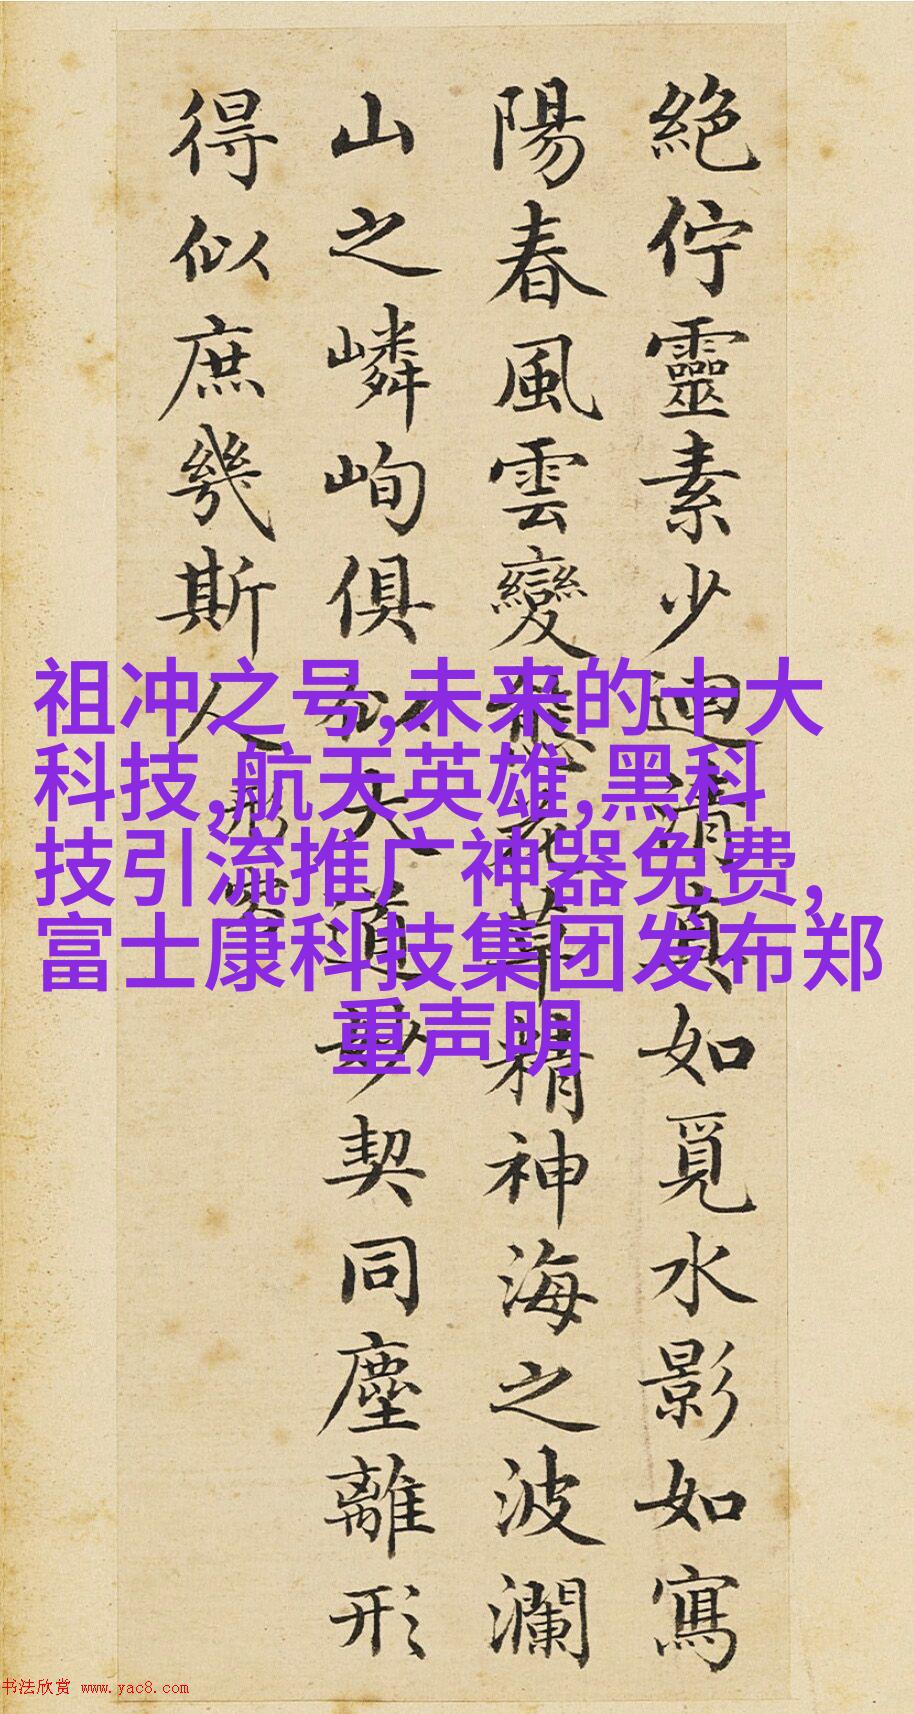 絕佇靈素少迴清真如覓水影如寫
陽春風雲變態花草精神海之波瀾
山之嶙峋俱似大道妙契同塵離形
得似庶幾斯人形容
祖冲之号,未来的十大
科技,航天英雄,黑科
技引流推广神器免费,
富士康科技集团发布郑
重声明
书法欣赏 www.yac8.com